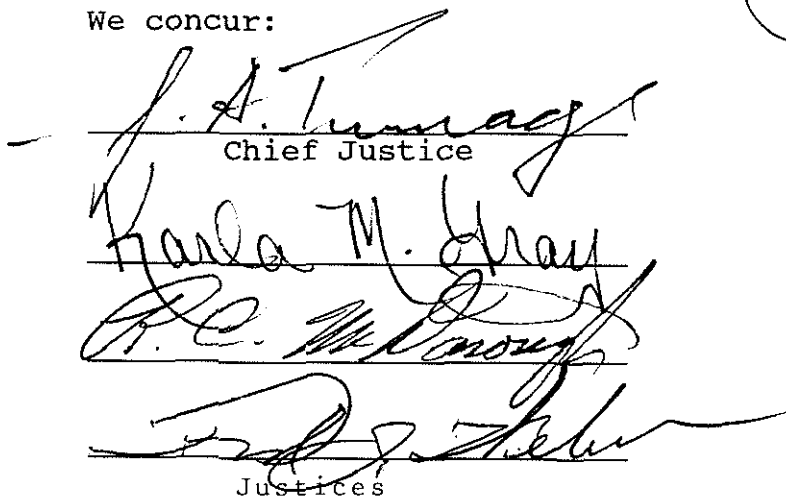 We concur:
J. A. Turnage
Chief Justice
Karla M. Gray
R. C. McDonough
Justices